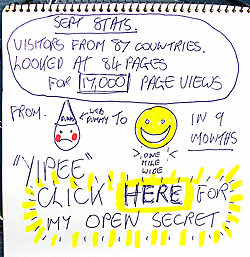 SEPT STATS.
VISITORS FROM 87 COUNTRIES.
LOOKED AT 84 PAGES
FOR 17,000 PAGE VIEWS
FROM. WEB DUMMY TO IN 9 MONTHS
DUNCE
ONE MILE WIDE
"YIPEE"
CLICK HERE FOR
MY OPEN SECRET